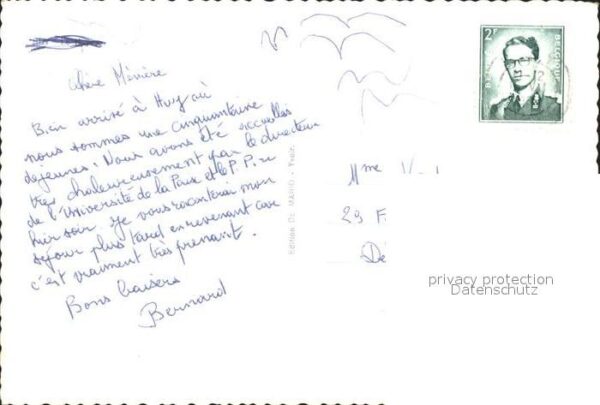 Chère Mémère
Bien arrivé à Huy où
nous sommes une cinquantaine
de jeunes. Nous avons été accueillis
très chaleureusement par le directeur
de l'Université de la Paix et le P. Pire
hier soir. Je vous raconterai mon
séjour plus tard en revenant car
c'est vraiment très prenant.
Bons baisers
Bernard
2F
BELGIQUE
Mme
29 F
De
privacy protection
Datenschutz